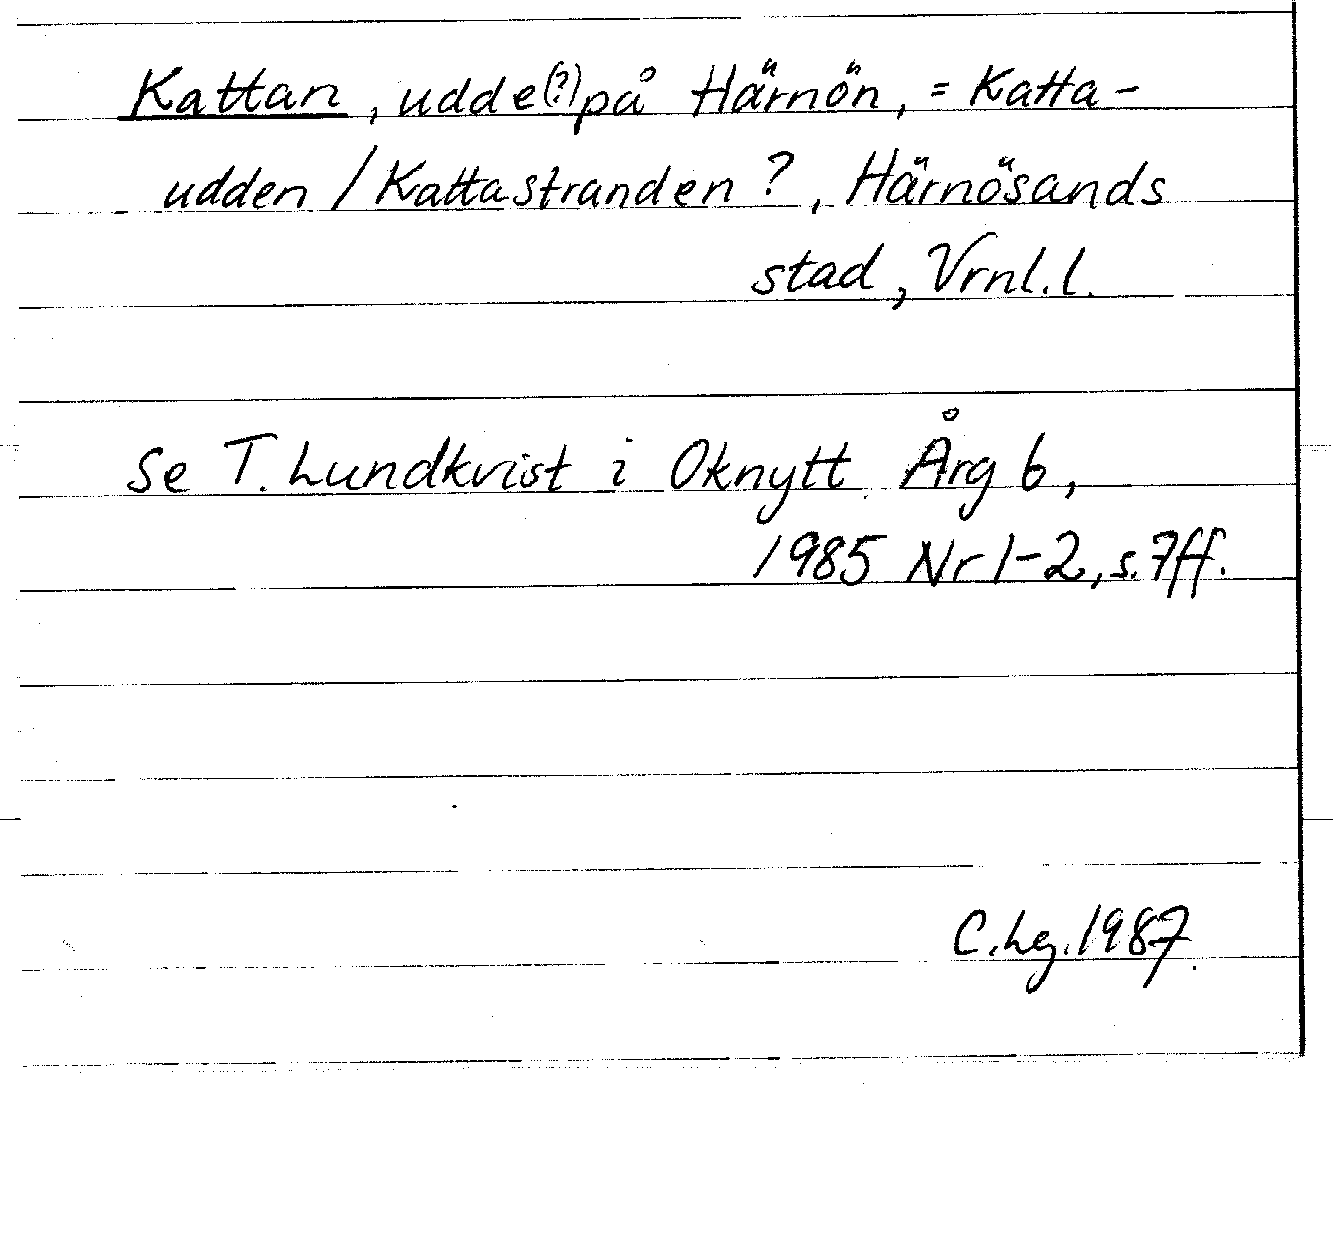 Kattan, udde(?) på Härnön, = Katta-
udden / Kattastranden ?, Härnösands
stad, Vrnl.l.
Se T. Lundkvist i Oknytt Årg 6,
1985 Nr 1-2, s. 7ff.
C.Lg. 1987.